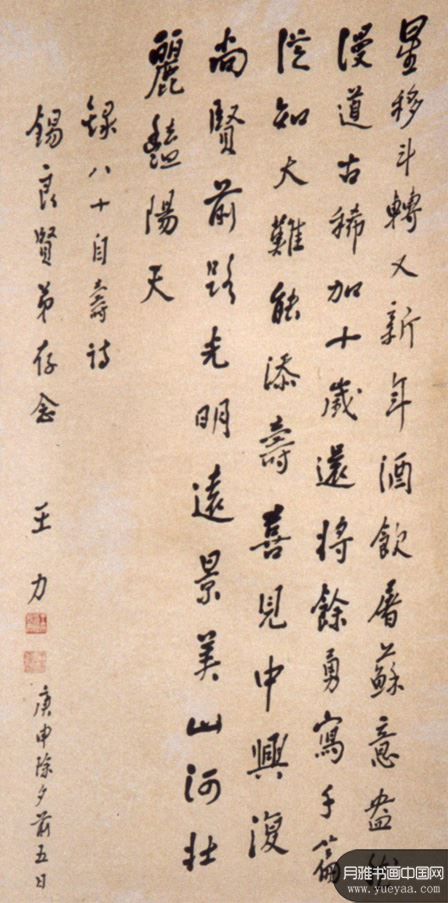 星移斗轉又新年酒飲屠蘇意盎
漫道古稀加十歲還將餘勇寫千篇
從知大難能添壽喜見中興復
尚賢前路光明遠景美山河壯
麗豔陽天
錄八十自壽詩
錫良賢弟存念
王力
庚申除夕前五日
月雅书画中国网
www.yueyaa.com